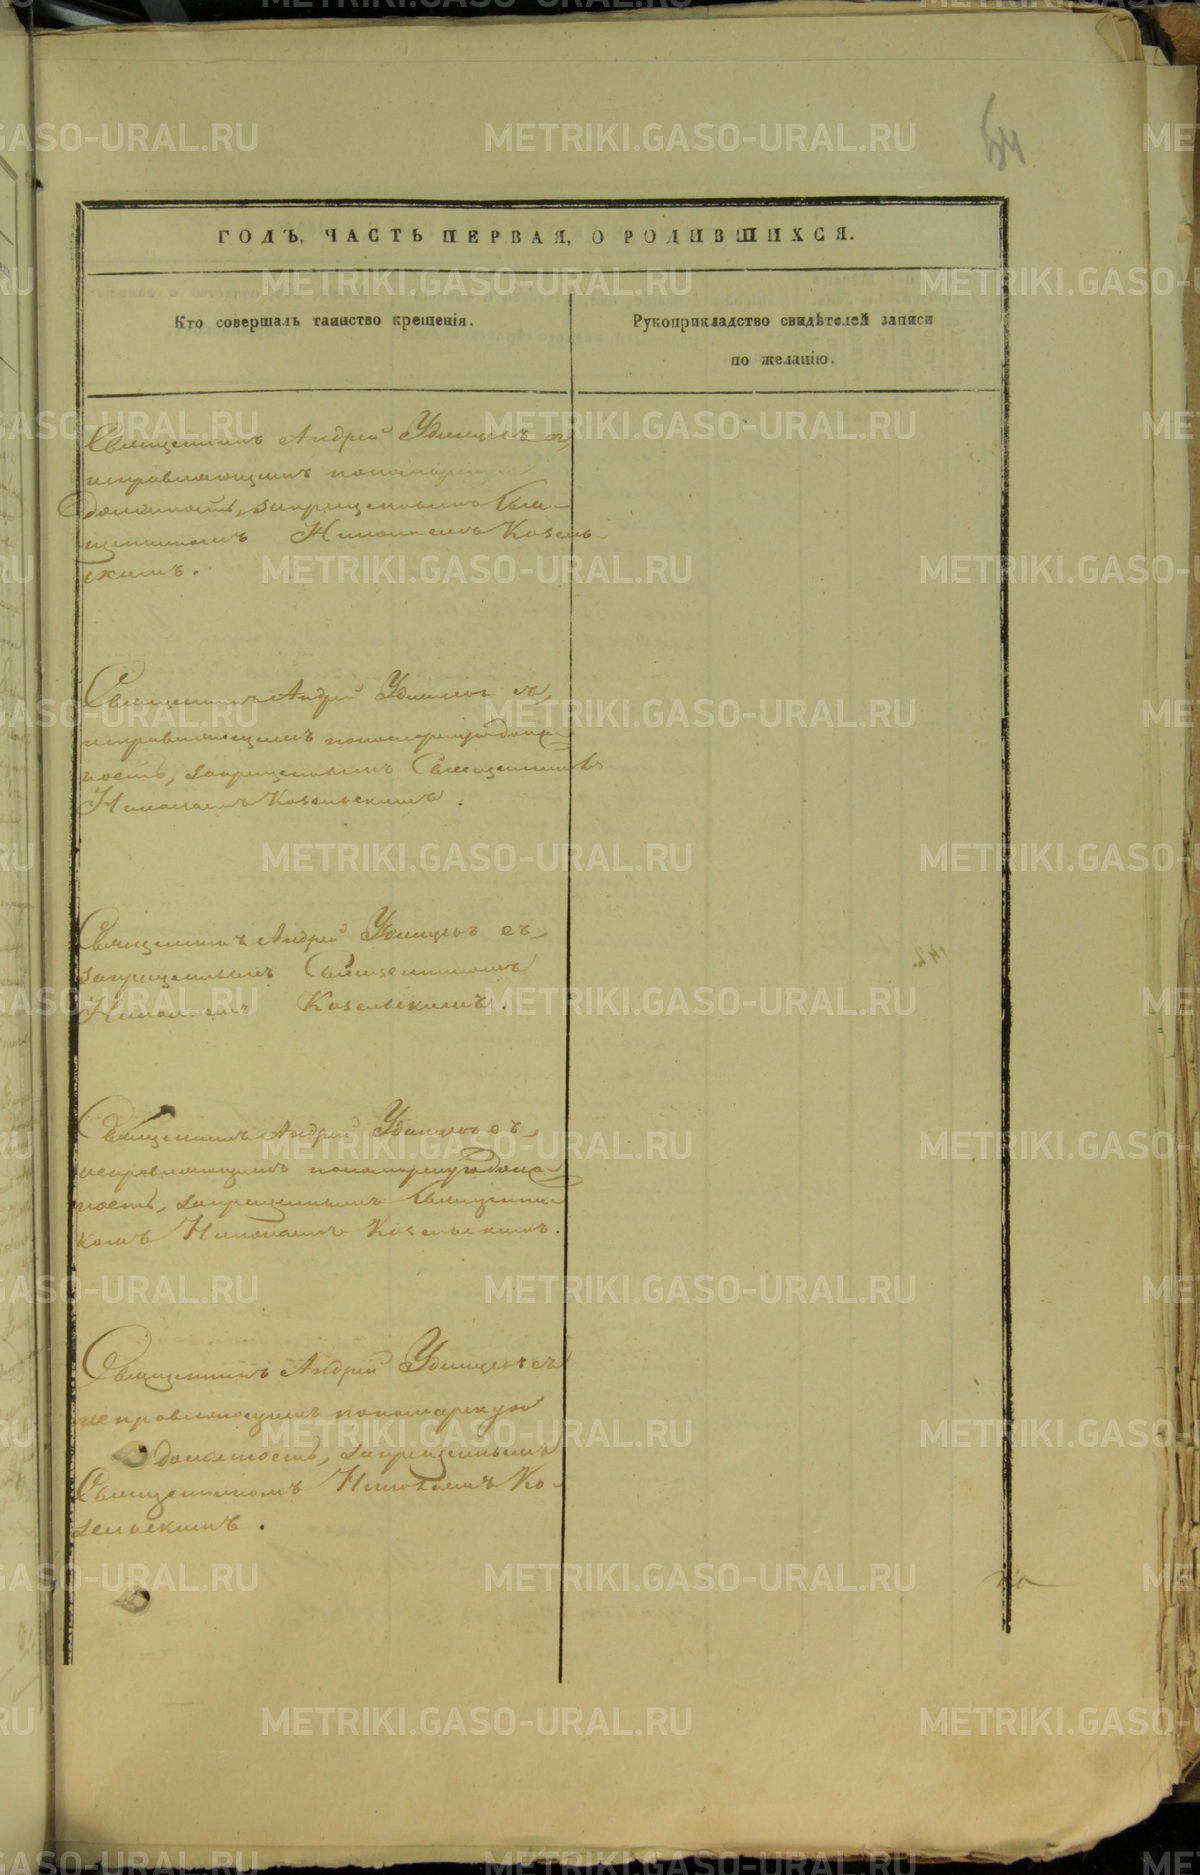 54
ГОДЪ, ЧАСТЬ ПЕРВАЯ, О РОДИВШИХСЯ.
Кто совершалъ таинство крещенія.
Рукоприкладство свидѣтелей записи
по желанію.
Священникъ Андрей Удинцевъ съ
исправляющимъ пономарскую
должность, запрещеннымъ Свя-
щенникомъ Николаемъ Козель-
скимъ.
Священникъ Андрей Удинцевъ съ
исправляющимъ пономарскую долж-
ность, запрещеннымъ Священникомъ
Николаемъ Козельскимъ.
Священникъ Андрей Удинцевъ съ
запрещеннымъ Священникомъ
Николаемъ Козельскимъ.
Священникъ Андрей Удинцевъ съ
исправляющимъ пономарскую долж-
ность, запрещеннымъ Священни-
комъ Николаемъ Козельскимъ.
Священникъ Андрей Удинцевъ съ
исправляющимъ пономарскую
должность, запрещеннымъ
Священникомъ Николаемъ Ко-
зельскимъ.
METRIKI.GASO-URAL.RU